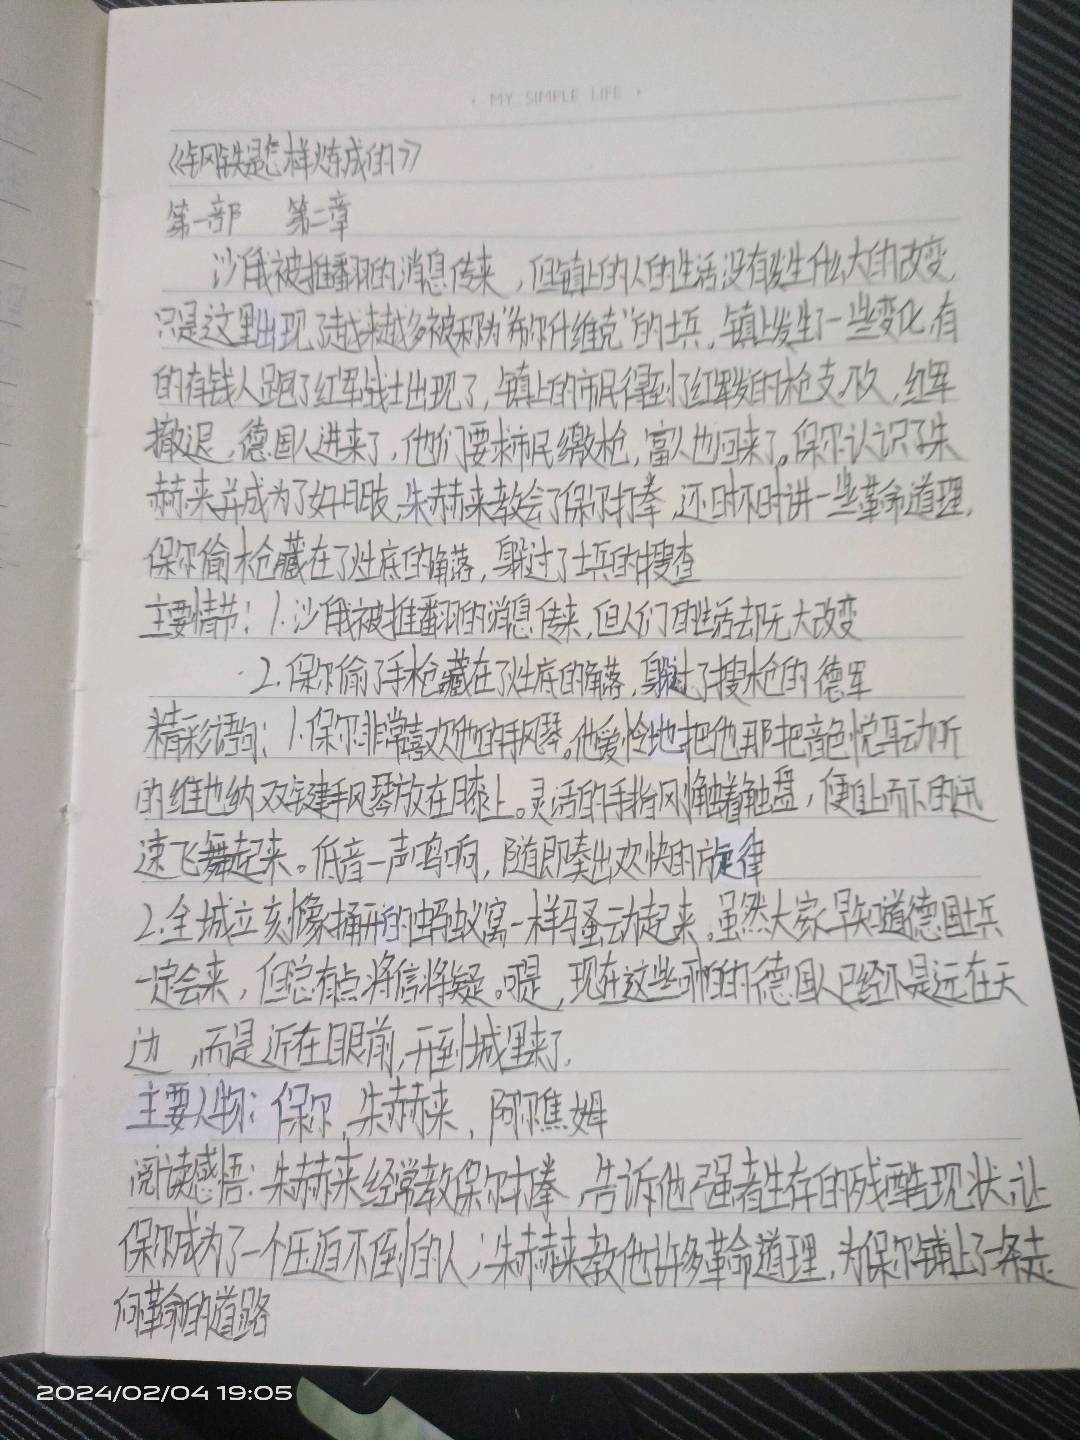 · MY SIMPLE LIFE ·
《钢铁是怎样炼成的》
第一部 第二章
沙俄被推翻的消息传来，但镇上的人的生活没有发生什么大的改变，
只是这里出现了越来越多被称为“布尔什维克”的士兵，镇上发生了一些变化，有
的有钱人跑了红军战士出现了，镇上的市民得到了红军发的枪支，不久，红军
撤退，德国人进来了，他们要求市民缴枪，富人也回来了。保尔认识了朱
赫来并成为了好朋友，朱赫来教会了保尔打拳，还时不时讲一些革命道理，
保尔偷枪藏在了灶底的角落，躲过了士兵的搜查
主要情节：1.沙俄被推翻的消息传来，但人们的生活却无大改变
2.保尔偷了手枪藏在了灶底的角落，躲过了搜枪的德军
精彩语句：1.保尔非常喜欢他的手风琴。他爱怜地把他那把音色悦耳动听
的维也纳双键手风琴放在膝上。灵活的手指刚触着触盘，便自上而下的迅
速飞舞起来。低音一声鸣响，随即奏出欢快的旋律
2.全城立刻像捅开的蚂蚁窝一样骚动起来。虽然大家早知道德国士兵
一定会来，但总有点将信将疑。可是，现在这些可怕的德国人已经不是远在天
边，而是近在眼前，开到城里来了.
主要人物：保尔，朱赫来，阿尔焦姆
阅读感悟：朱赫来经常教保尔打拳，告诉他强者生存的残酷现状，让
保尔成为了一个压迫不倒的人；朱赫来教他许多革命道理，为保尔铺上了一条走
向革命的道路
2024/02/04 19:05